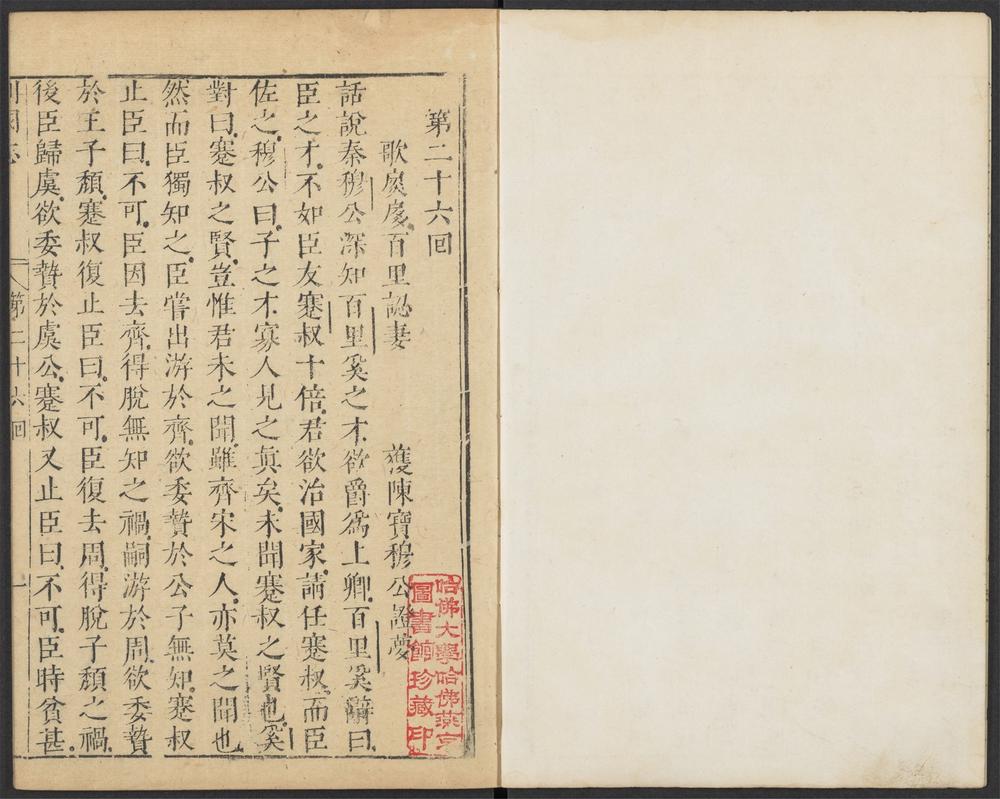 第二十六回
歌扊扅百里認妻 獲陳寶穆公證夢
話說秦穆公深知百里奚之才欲爵爲上卿百里奚辭曰
臣之才不如臣友蹇叔十倍君欲治國家請任蹇叔而臣
佐之穆公曰子之才寡人見之眞矣未聞蹇叔之賢也奚
對曰蹇叔之賢豈惟君未之聞雖齊宋之人亦莫之聞也
然而臣獨知之臣嘗出游於齊欲委贄於公子無知蹇叔
止臣曰不可臣因去齊得脫無知之禍嗣游於周欲委贄
於王子頹蹇叔復止臣曰不可臣復去周得脫子頹之禍
後臣歸虞欲委贄於虞公蹇叔又止臣曰不可臣時貧甚
列國志 第二十六回 一
哈佛大學哈佛燕京
圖書館珍藏印